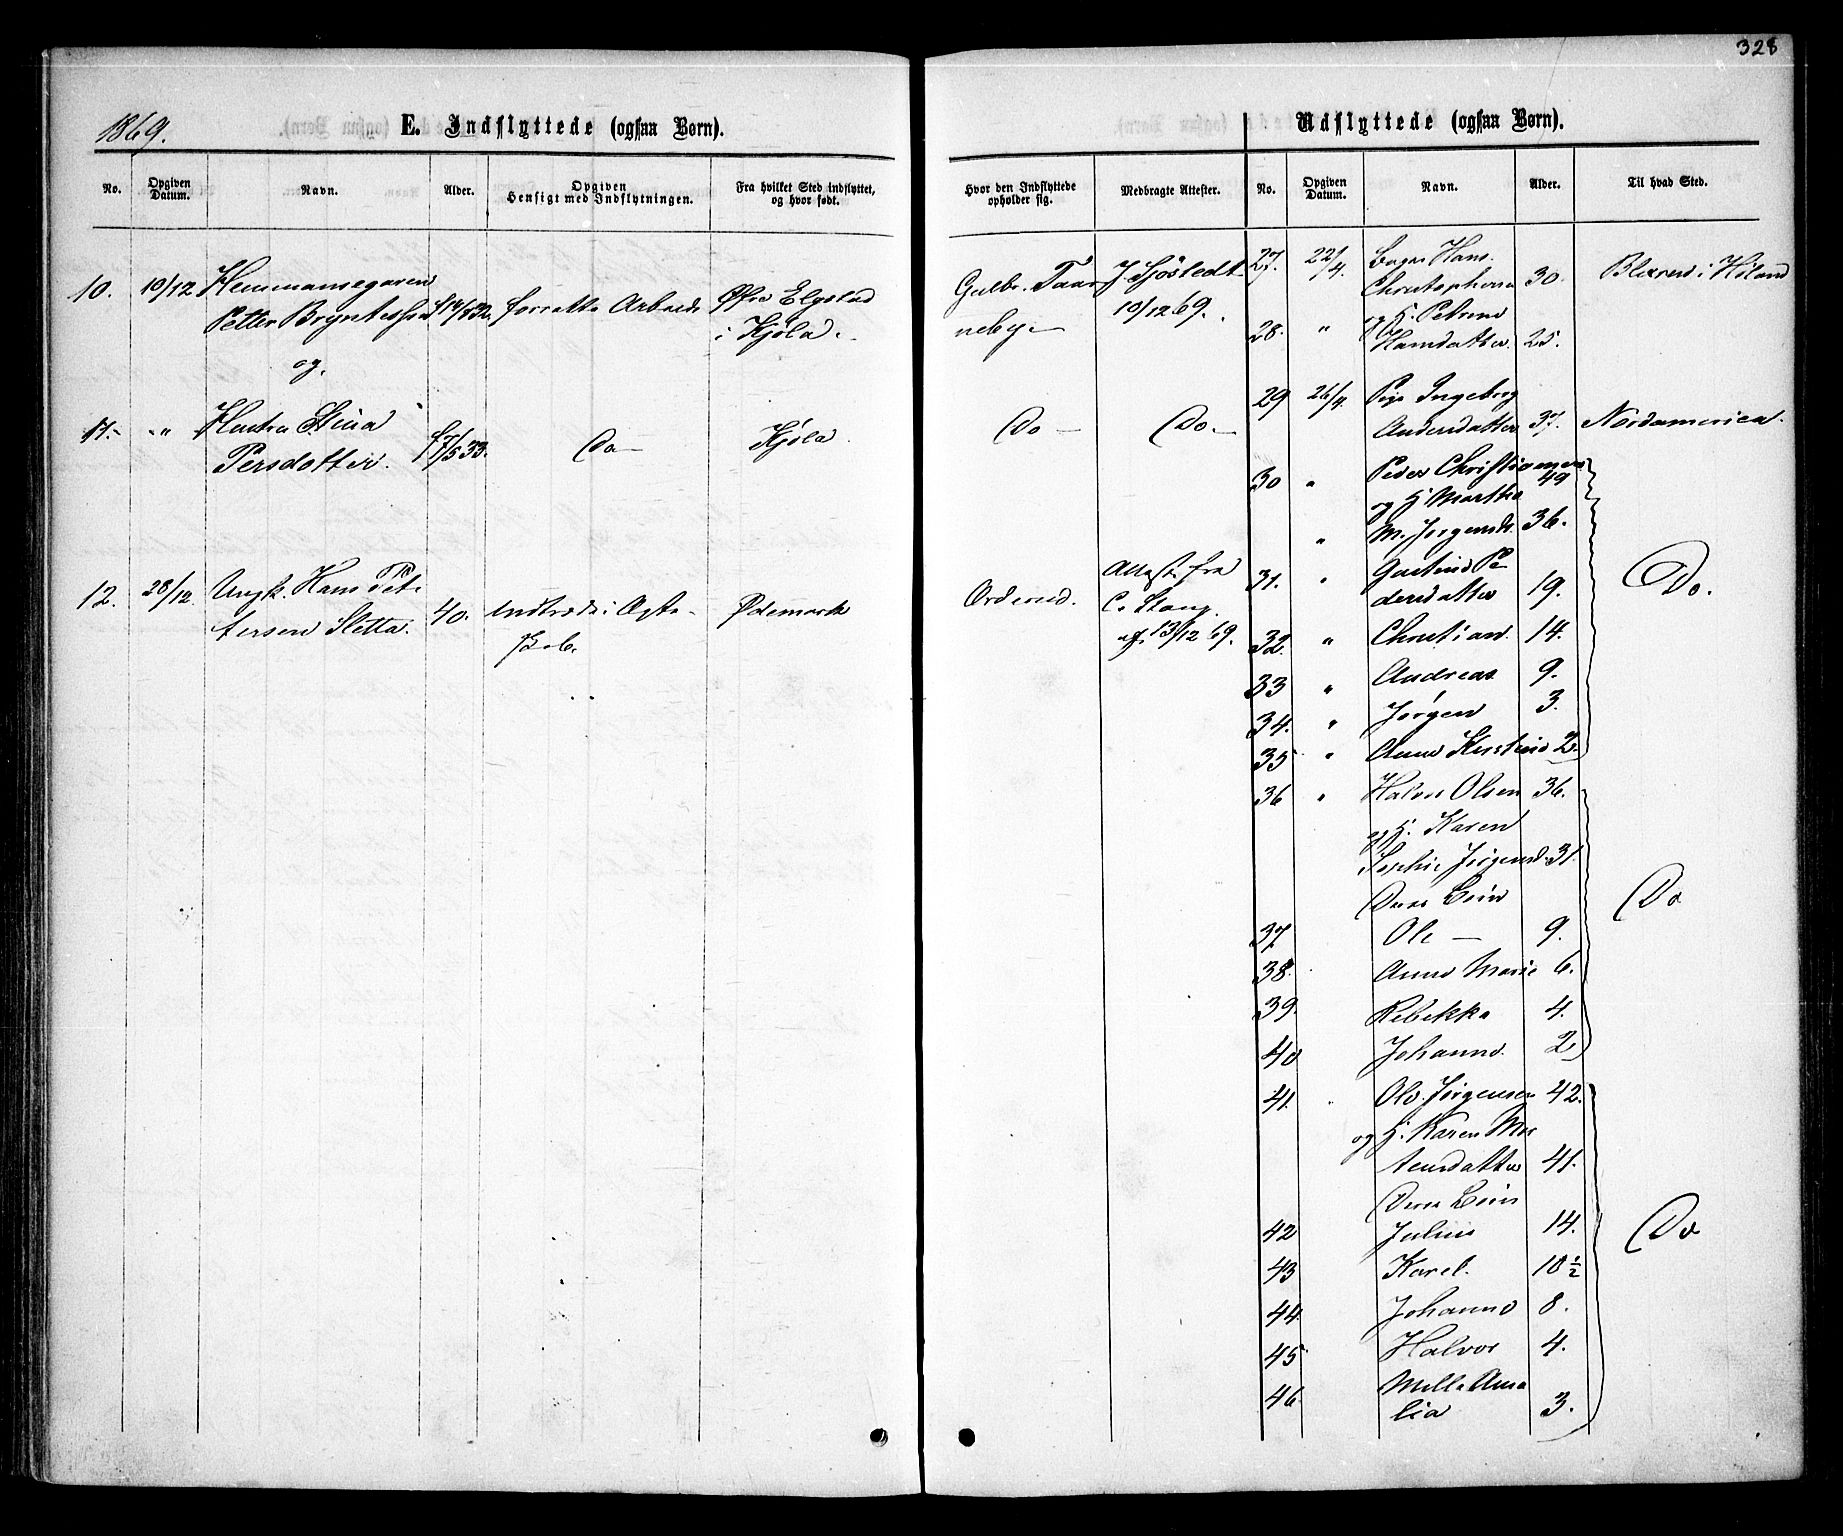 328
1869.
E. Indflyttede (ogsaa Børn).
No.
Opgiven Datum.
Navn.
Alder.
Opgiven Hensigt med Indflytningen.
Fra hvilket Sted indflyttet, og hvor født.
10. 10/12 Hemmansegaren
Petter Bryntesson
og
forrette Arbeide
Øfre Elgstad
i Kjøla.
11. " Hustru Stina
Persdotter. f 7/5 33.
Do
Kjøla.
12. 28/12 Ungk. Hans Pet-
tersen Sletta. 40.
indtræde i Ægte-
skab.
Ødemark
Udflyttede (ogsaa Børn).
Hvor den Indflyttede opholder sig.
Medbragte Attester.
No.
Opgiven Datum.
Navn.
Alder.
Til hvad Sted.
Gulbr. Taar
nebye
J Sjöstedt
10/12 69.
Do
Do.
Orderud.
Attest fra
C. Stang
af 13/12 69.
27. 22/4. Hans
Christophersen 30. i Høland
og H. Petrine
28. " Hansdatter. 25.
29 26/4. Pige Ingeborg
Andersdatter 37. Nordamerica.
30 " Peder Christiansen 49
og H. Marthe
" M. Jørgensdr. 36.
31. " Pe
dersdatter 19. Do.
32. " Christian. 14.
33 " Andreas 9.
34. " Jørgen 3.
35 " Anne Kirstine 2.
36 " Halvor Olsen 36.
og H. Karen
Sophie Jørgensd. 31.
Deres Børn Do
37 Ole — 9.
38. Anne Marie 6.
39. Rebekka 4.
40 Johanne. 2
41. Ole Jørgensen 42.
og H. Karen Mor
tensdatter 41.
Deres Børn
42 Julius 14. Do
43 Karel. 10 1/2
44. Johanne 8.
45 Halvor 4.
46 Mille Ama
lia 3.